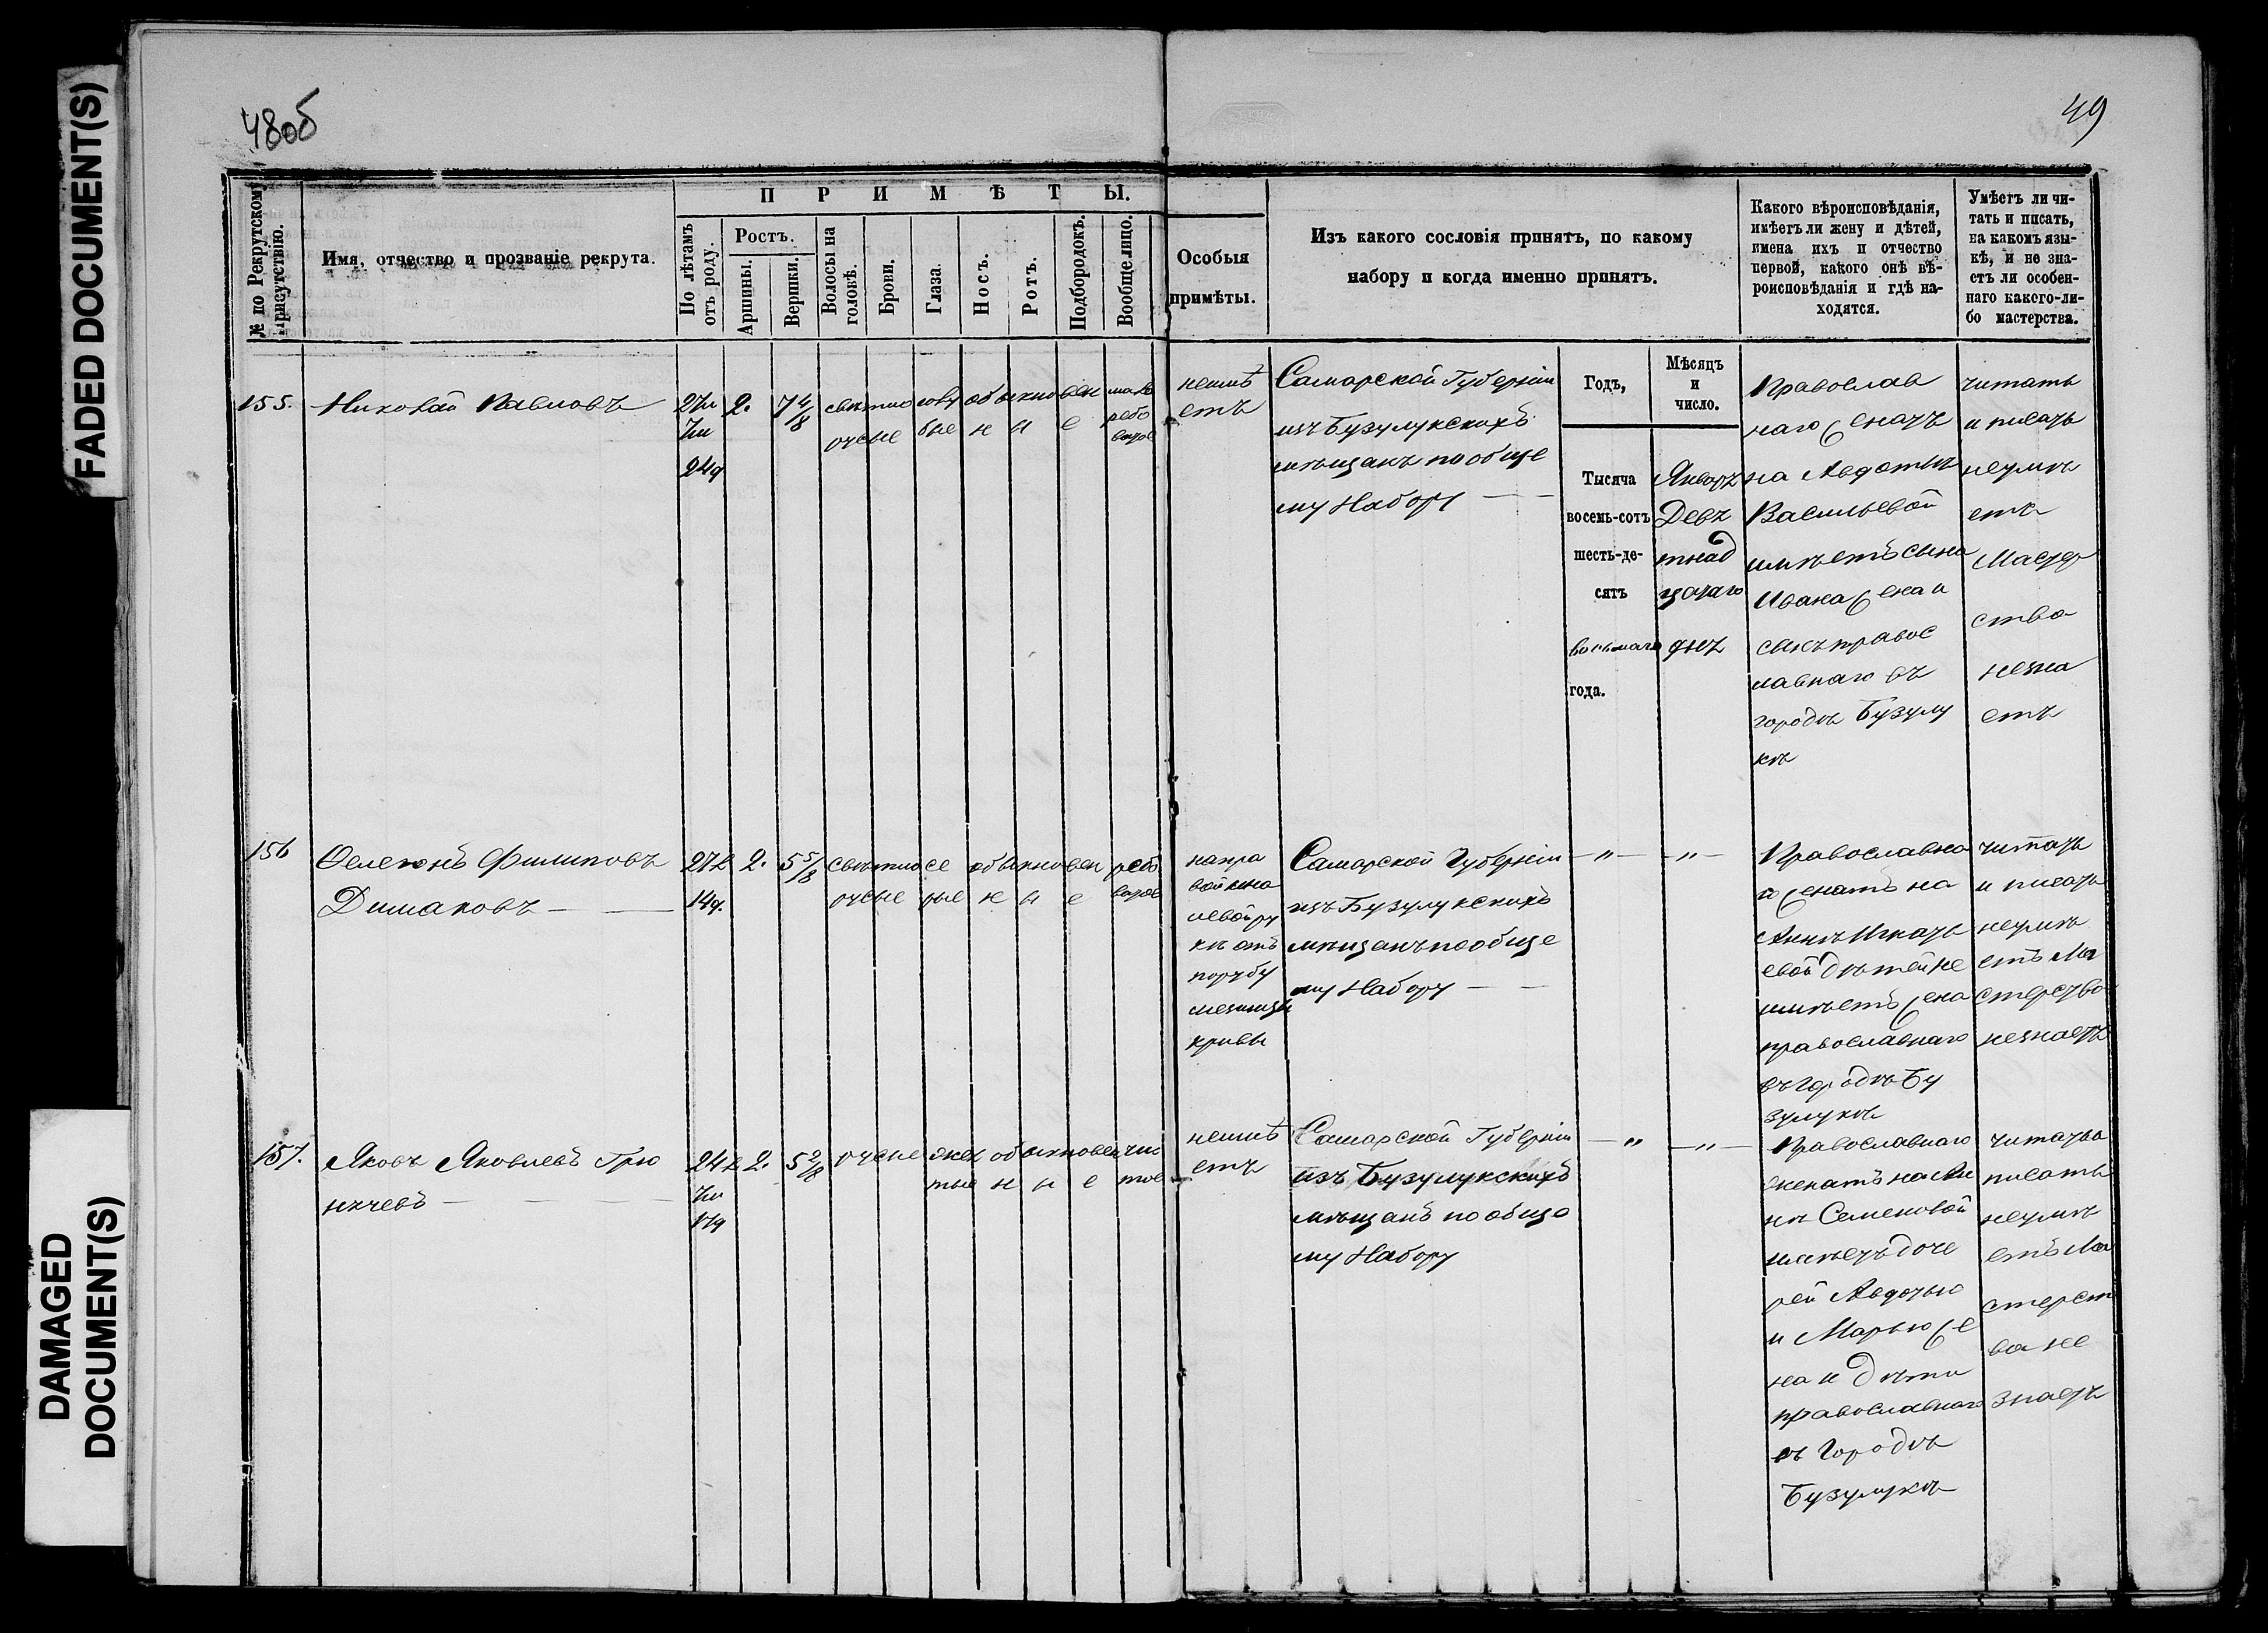 FADED DOCUMENT(S)
DAMAGED
DOCUMENT(S)
48об
49
№ по Рекрутскому
присутствію.
Имя, отчество и прозваніе рекрута.
ПРИМѢТЫ.
По лѣтамъ
отъ роду.
Ростъ.
Аршины.
Вершки.
Волосы на
головѣ.
Брови.
Глаза.
Носъ.
Ротъ.
Подбородокъ.
Вообще лицо.
Особыя
примѣты.
Изъ какого сословія принятъ, по какому
набору и когда именно принятъ.
Какого вѣроисповѣданія,
имѣетъ ли жену и дѣтей,
имена ихъ и отчество
первой, какого онѣ вѣ-
роисповѣданія и гдѣ на-
ходятся.
Умѣетъ ли чи-
тать и писать,
на какомъ язы-
кѣ, и не зна-
етъ ли особен-
наго какого-ли-
бо мастерства.
155.
Николай Павловъ
27л
7м
24д
2.
7 4/8
свѣтло
русые
голу
бые
обыкновен
ныe
неимѣ
етъ
Самарской Губерніи
изъ Бузулукскихъ
мѣщанъ по обще
му Набору
Годъ,
Тысяча
восемь-сотъ
шесть-де-
сятъ
восьмаго
года.
Мѣсяцъ
и
число.
Январъ
Девъ
тнад
цатаго
днъ
Православ
наго женатъ
на Авдотьѣ
Васильевой
имѣетъ сына
Ивана жена и
сынъ правос
лавнаго въ
городѣ Бузулу
кѣ
читать
и писать
неумѣ
етъ
Мастер
ства
незна
етъ
156
Филиповъ
Димаковъ
27л
14д.
2.
5 5/8
свѣтло
русые
се
рые
обыкновен
ные
рябо
ватое
направой
на
левой ру
кѣ отъ
порубу
мезинцы
кривы
Самарской Губерніи
изъ Бузулукскихъ
мѣщанъ по обще
му Набору
—„—
—„—
Православна
го женатъ на
Аннѣ Игнать
евой дѣтей не
имѣетъ жена
православнаго
въ городѣ Бу
зулукѣ
читать
и писать
неумѣ
етъ Ма
стерства
незнаетъ
157.
Яковъ Яковлевъ
24л
7м
17д
2.
5 2/8
русые
жел
тые
обыкновен
ные
чис
тое
неимѣ
етъ
Самарской Губерніи
изъ Бузулукскихъ
мѣщанъ по обще
му Набору
—„—
—„—
Православнаго
женатъ на Ан
нѣ Семеновой
имѣетъ доче
рей Авдотью
и Марью же
на и дѣти
православнаго
въ Городѣ
Бузулукѣ
читать и
писать
неумѣ
етъ Ма
стерст
ва не
знаетъ